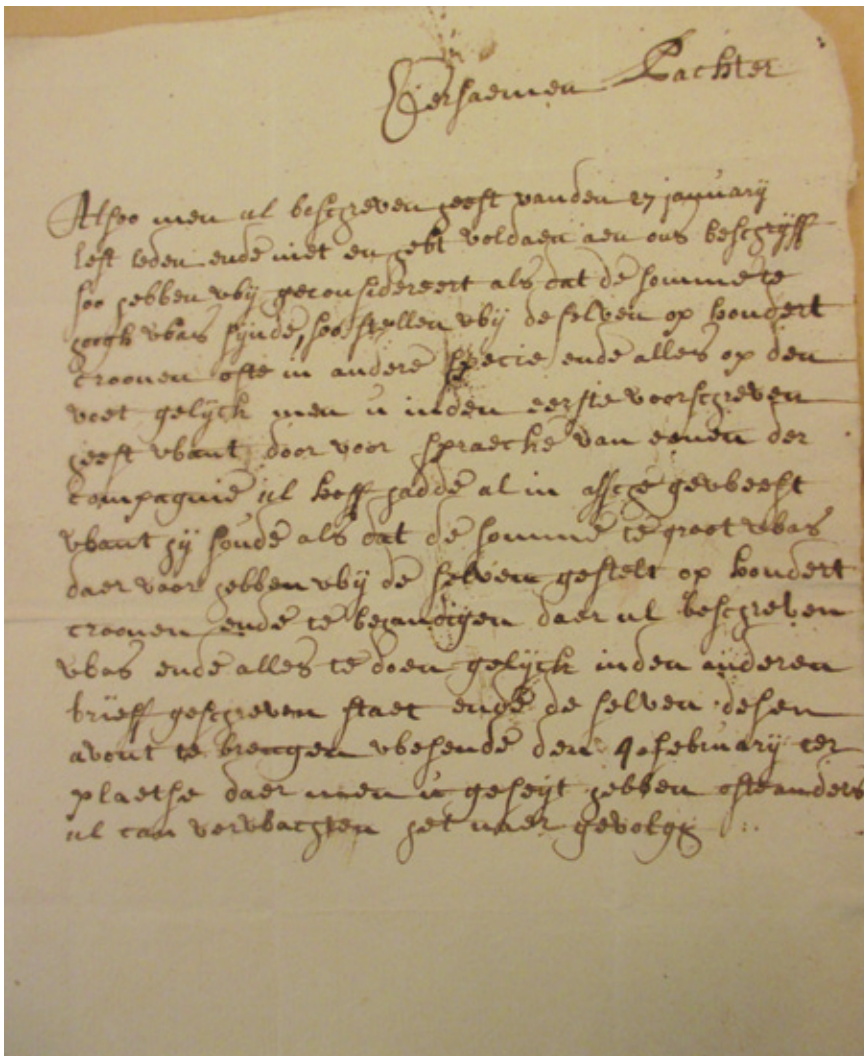 Eersaemen Pachter
Alsoo men ul beschreven heeft vanden 27 january
lest leden ende niet en hebt voldaen aen ons beschryff
soo hebben wy geconsidereert als dat de somme te
hoogh was synde, soo stellen wy de selven op hondert
croonen ofte in andere specie ende alles op den
voet gelyck men u inden eerste voorschreven
heeft want door voor spraecke van eenen der
compagnie ul hoff hadde al in assche geweest
want hy seude als dat de somme te groot was
daer voor hebben wy de selven gestelt op hondert
croonen ende te behandigen daer ul beschreven
was ende alles te doen gelyck inden anderen
brieff geschreven staet ende de selven desen
avont te brengen wesende den 4 february ter
plaetse daer men u geseyt hebben ofte anders
ul can verwachten het naer gevolgh